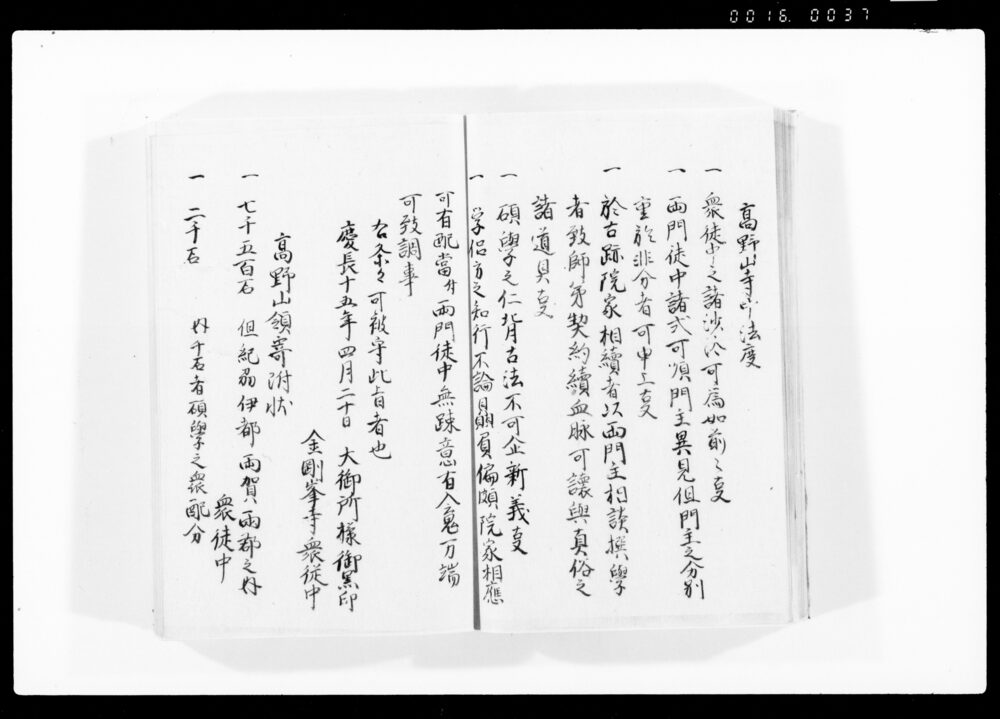 0016. 0037
高野山寺中法度
一 衆徒中之諸沙汰可為如前々事
一 両門徒中諸式可順門主異見但門主之分別
重於非分者可申上事
一 於古跡院家相續者以両門主相談撰學
者致師弟契約續血脉可譲與真俗之
諸道具事
一 碩學之仁背古法不可企新義事
一 学侶方之知行不論贔屓偏頗院家相應
可有配當幷両門徒中無踈意有入魂万端
可致調事
右条々可被守此旨者也
慶長十五年四月二十日 大御所様御黒印
金剛峯寺衆徒中
高野山領寄附状
一 七千五百石 但紀州伊都両賀両郡之内
衆徒中
一 二千石 内千石者碩學之衆配分